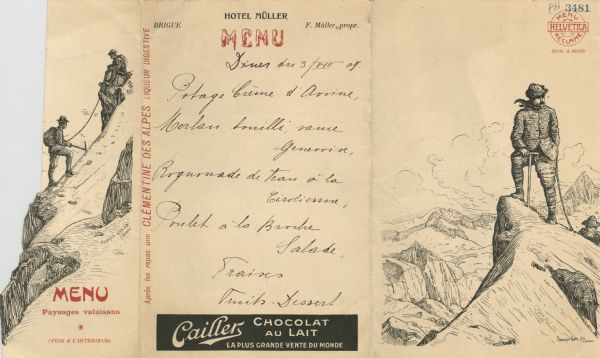 MENU
Paysages valaisans
(VOIR A L'INTÉRIEUR)
Après les repas une CLÉMENTINE DES ALPES LIQUEUR DIGESTIVE
HOTEL MÜLLER
BRIGUE
F. Müller, propr.
MENU
Diner du 3
Potage Crème d'Avoine,
Merlan bouilli, sauce
Genevoise,
Rognonade de veau à la
Tirolienne,
Poulet à la Broche
Salade,
Fraises
Fruits-Dessert.
Cailler's CHOCOLAT
AU LAIT
LA PLUS GRANDE VENTE DU MONDE
PH 3481
MENU
HELVETICA
RECLAME